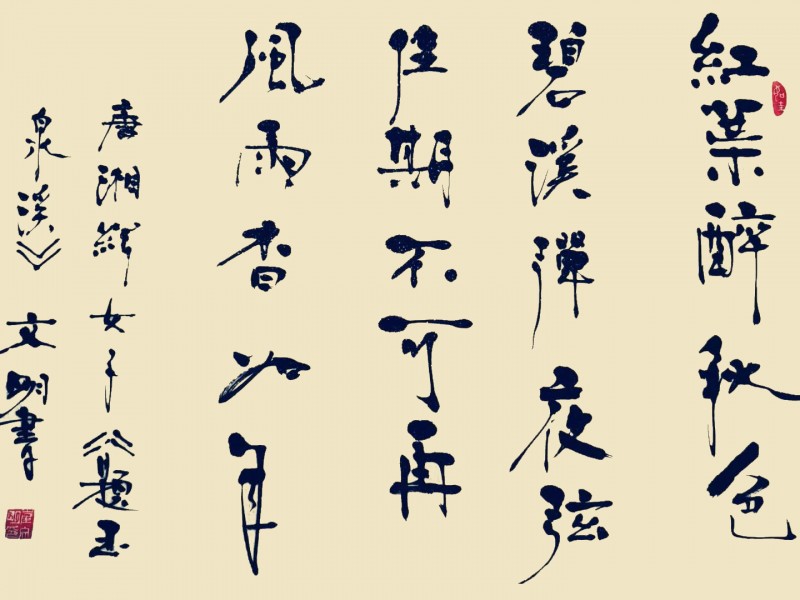 紅葉醉秋色
碧溪彈夜弦
佳期不可再
風雨杳如年
唐湘驛女子《題玉
泉溪》
文明書